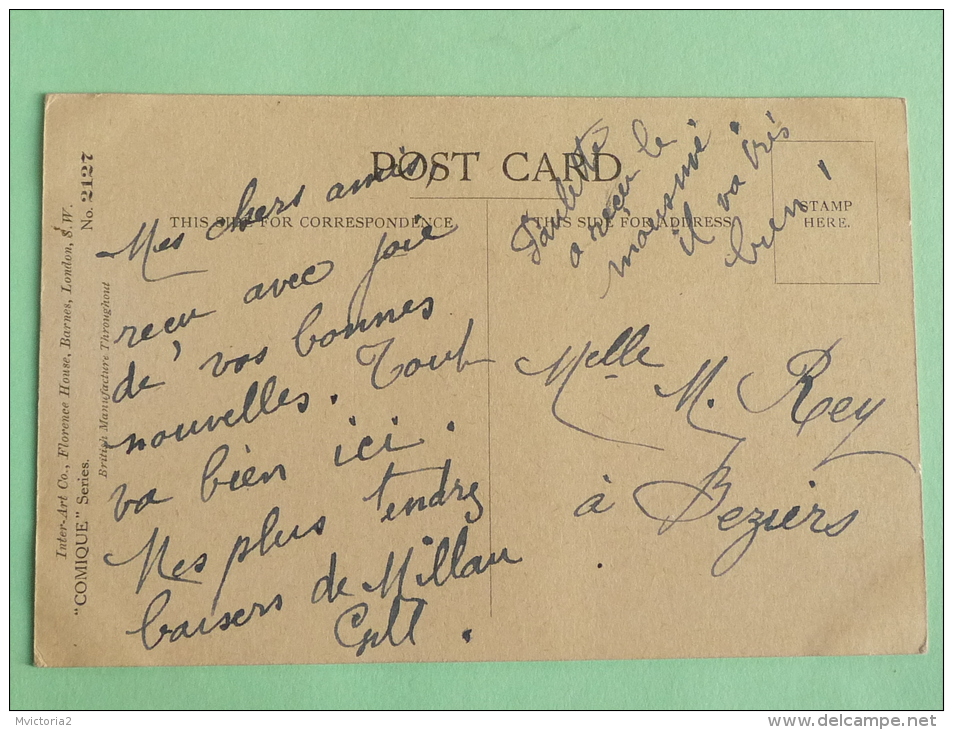 POST CARD
THIS SIDE FOR CORRESPONDENCE
THIS SIDE FOR ADDRESS
STAMP
HERE.
Inter-Art Co., Florence House, Barnes, London, S.W.
"COMIQUE" Series.
No. 2127
British Manufacture Throughout
Mes chers amis,
recu avec joie
de vos bonnes
nouvelles. Tout
va bien ici.
Mes plus tendres
baisers de Millau
Paulette
a reçu le
il va très
bien !
Melle M. Rey
à Beziers
Mvictoria2
www.delcampe.net